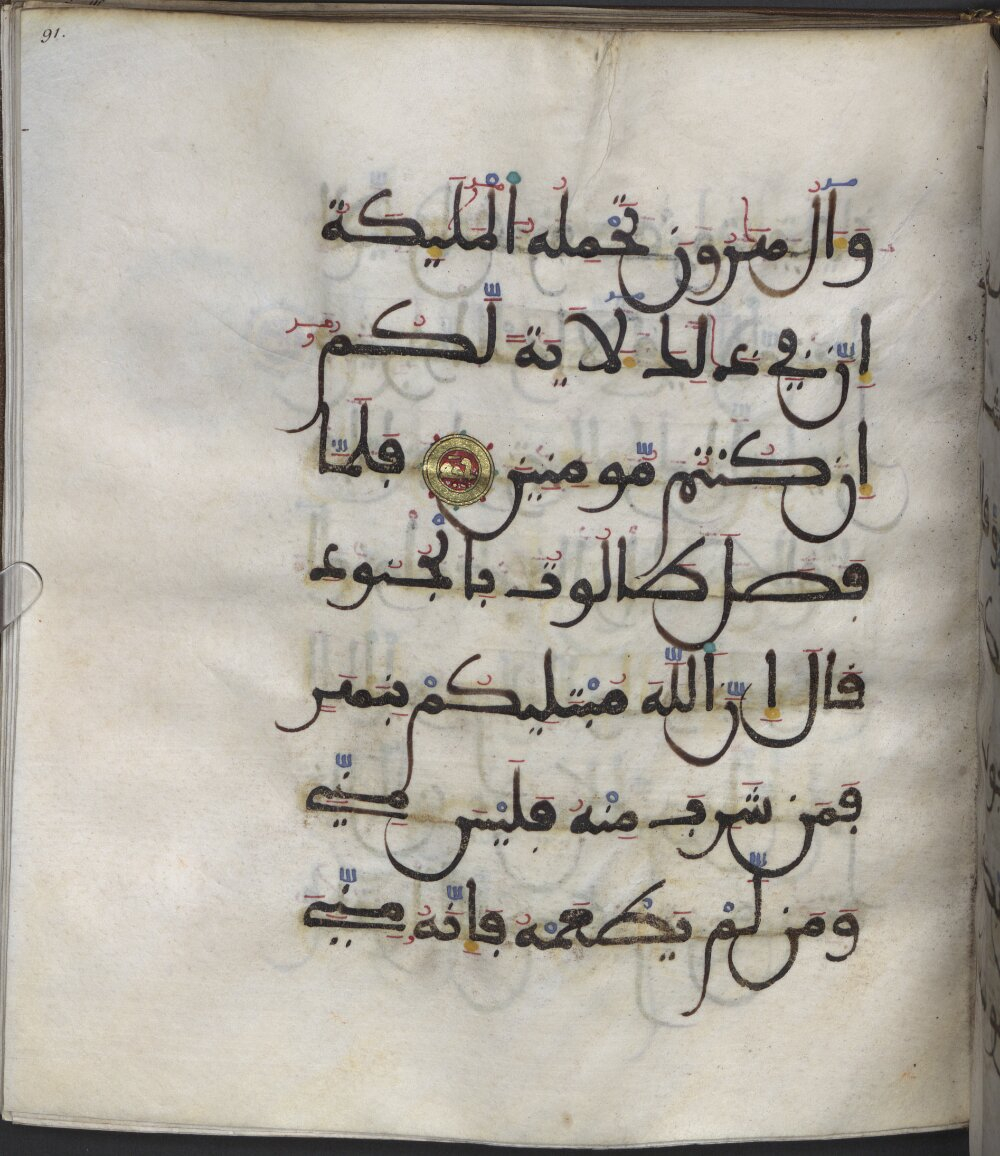 91.
وَءَالُ هَٰرُونَ تَحْمِلُهُ اُ۬لْمَلَٰٓئِكَةُ
إِنَّ فِي ذَٰلِكَ لَأٓيَةٗ لَّكُمُۥٓ
إِن كُنتُم مُّومِنِينَ فَلَمَّا
فَصَلَ طَالُوتُ بِالْجُنُودِ
قَالَ إِنَّ اَ۬للَّهَ مُبْتَلِيكُم بِنَهَرٖ
فَمَن شَرِبَ مِنْهُ فَلَيْسَ مِنِّي
وَمَن لَّمْ يَطْعَمْهُ فَإِنَّهُۥ مِنِّيَ